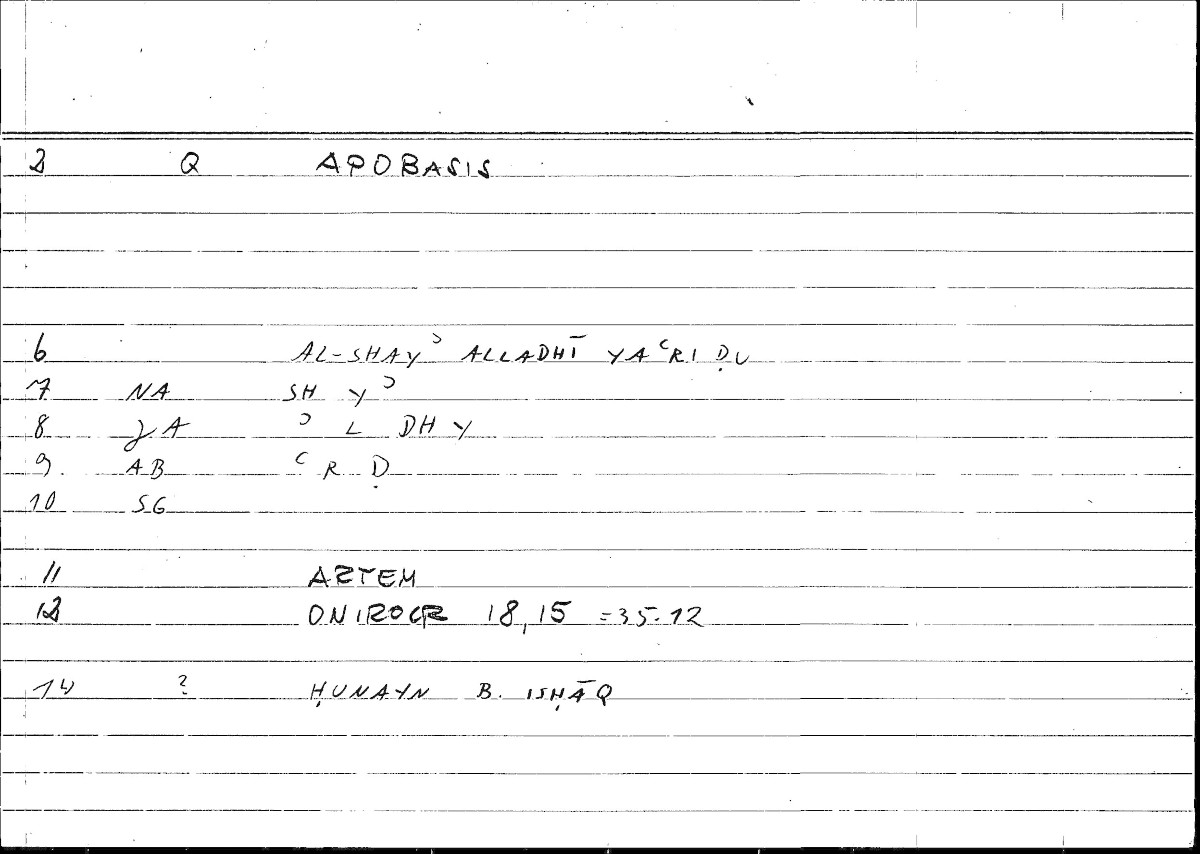 2 Q APOBASIS
6 AL-SHAYʾ ALLADHĪ YAʿRIḌU
7 NA SH Yʾ
8 JA ʾ L DH Y
9. AB ʿ R Ḍ
10 SG
11 ARTEM
12 ONIROCR 18,15 =35.12
14 ? ḤUNAYN B. ISḤĀQ